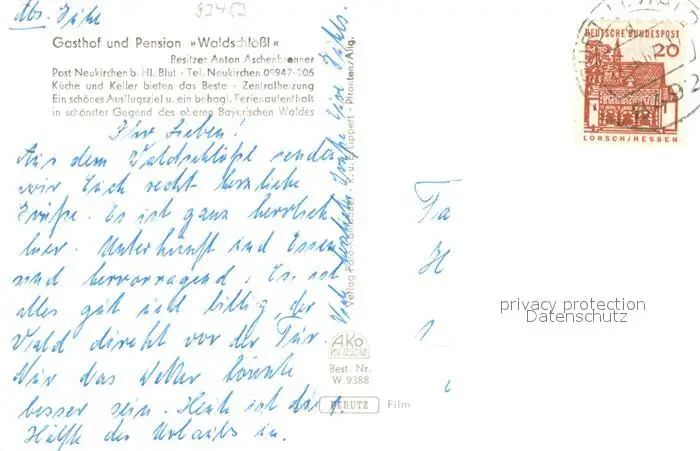 Abs.
93453
Gasthof und Pension »Waldschlößl«
Besitzer Anton Aschenbrenner
Post Neukirchen b. Hl. Blut · Tel. Neukirchen 09947-206
Küche und Keller bieten das Beste · Zentralheizung
Ein schönes Ausflugsziel u. ein behagl. Ferienaufenthalt
in schönster Gegend des oberen Bayerischen Waldes
Ihr Lieben!
Aus dem Waldschlößl senden
wir Euch recht herzliche
Grüße. Es ist ganz herrlich
hier. Unterkunft und Essen
sind hervorragend. Es ist
alles gut und billig, der
Wald direkt vor der Tür
Nur das Wetter könnte
besser sein. Heute ist die 1.
Hälfte des Urlaubs um.
herzliche Grüße Eure
Pfronten/Allg.
AKO
Best. Nr.
W 9388
PERUTZ Film
DEUTSCHE BUNDESPOST
20
LORSCH/HESSEN
8492
Ta
H
1
privacy protection
Datenschutz